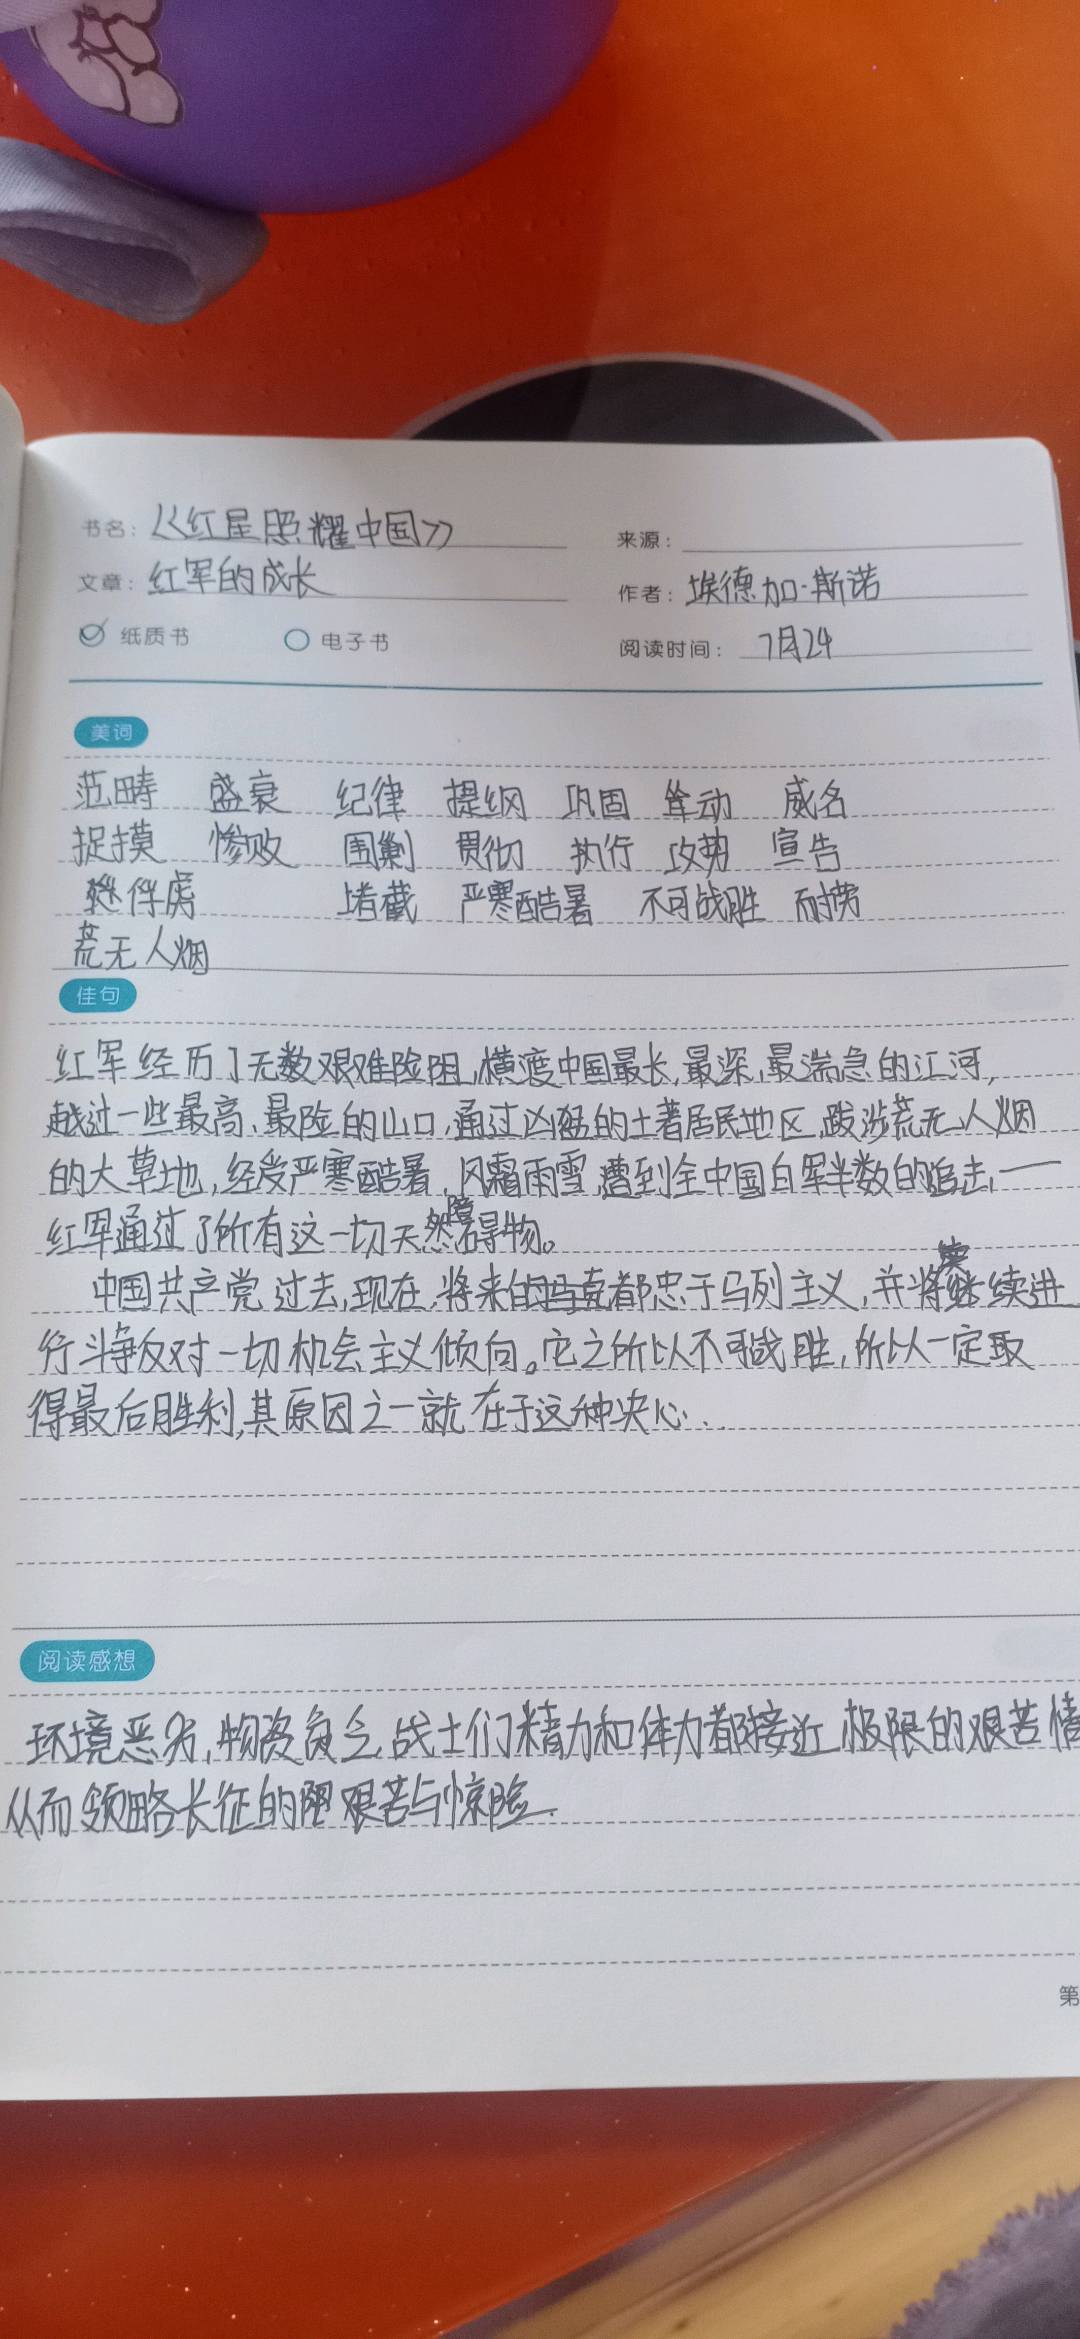 书名：《红星照耀中国》
来源：
文章：红军的成长
作者：埃德加·斯诺
纸质书 电子书
阅读时间：7月24
美词
范畴 盛衰 纪律 提纲 巩固 耸动 威名
捉摸 惨败 围剿 贯彻 执行 攻势 宣告
俘虏 堵截 严寒酷暑 不可战胜 耐劳
荒无人烟
佳句
红军经历了无数艰难险阻,横渡中国最长,最深,最湍急的江河,
越过一些最高、最险的山口,通过凶猛的土著居民地区,跋涉荒无人烟
的大草地,经受严寒酷暑,风霜雨雪,遭到全中国白军半数的追击,——
红军通过了所有这一切天然障碍物。
中国共产党过去,现在,将来都忠于马列主义,并将继续进
行斗争反对一切机会主义倾向。它之所以不可战胜,所以一定取
得最后胜利,其原因之一就在于这种决心..
阅读感想
环境恶劣,物资负乏,战士们精力和体力都接近极限的艰苦情
从而领略长征的艰苦与惊险.
第